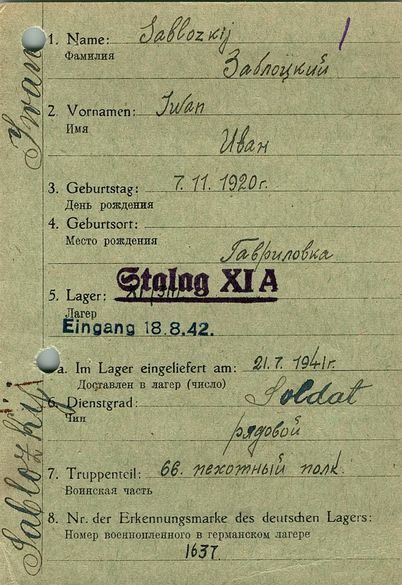 1. Name: Sablozkij
Фамилия
Заблоцкий
2. Vornamen: Iwan
Имя
Иван
3. Geburtstag: 7. 11. 1920 г.
День рождения
4. Geburtsort:
Место рождения
Гавриловка
Stalag XI A
5. Lager:
Лагер
Eingang 18. 8. 42.
a. Im Lager eingeliefert am: 21. 7. 1941 г.
Доставлен в лагер (число)
6. Dienstgrad: Soldat
Чин
рядовой
7. Truppenteil: 66. пехотный полк.
Воинская часть
8. Nr. der Erkennungsmarke des deutschen Lagers:
Номер военнопленного в германском лагере
1637.
Sablozkij Iwan